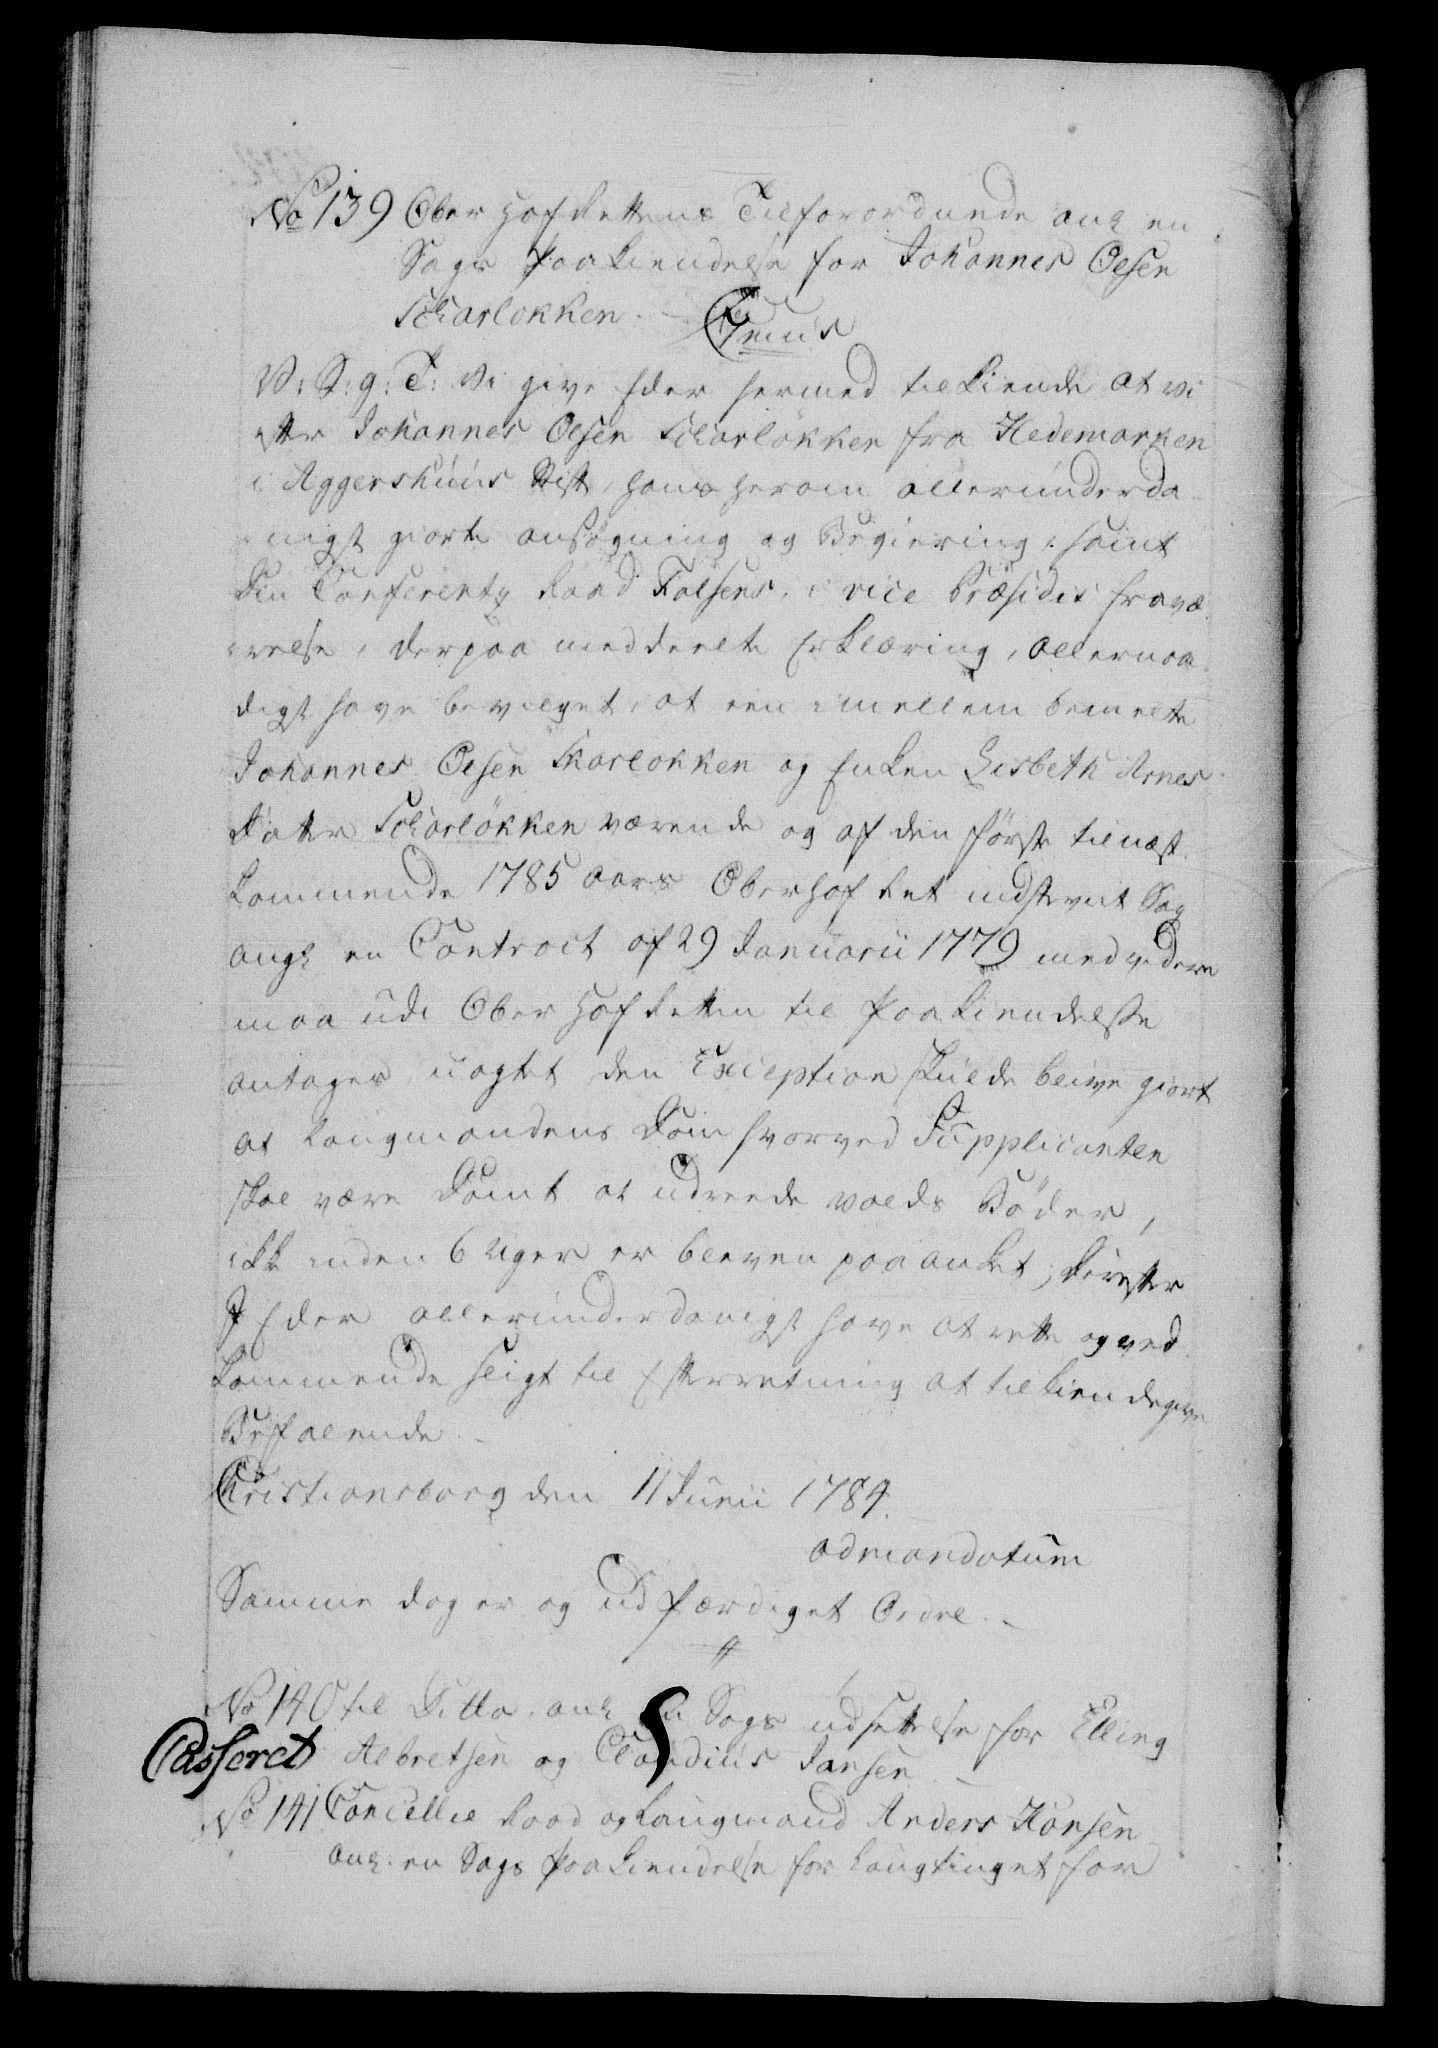 No 139 Ober Hof Rettens Tilforordnede ang en
Sags Paakiendelse for Johannes Olsen
Scharløkken.
V: S: g: T: Vi give Eder hermed tilkiende at vi
efter Johannes Olsen Scharløkken fra Hedemarken
i Aggershuus Stift, hans herom allerunderda-
nigst giorte ansøgning og Begiering, samt
Din Conferentz Raad Falsens, i vice Præsidis fravæ-
relse, derpaa meddeelte Erklæring, allernaa-
digst have bevilget, at een imellem bemelte
Johannes Olsen Skarlokken og Enken Lisbeth Arnes
Datter Scharløkken værende og af den første til næst-
kommende 1785 aars Oberhof Ret indstevnt Sag
angl en Contract af 29 Januarii 1779 med videre
maa udi Ober Hof Retten til Paakiendelse
antages, uagtet den Exception skulde blive giort
at Laugmandens Dom hvorved Supplicanten
skal være Dömt at udreede volds Böder,
ikke inden 6 Uger er bleven paaanket; Derefter
I Eder allerunderdanigst have at rette og ved-
kommende sligt til Efterretning at tilkiendegive
Befalende.
Christiansborg den 11 Junii 1784.
ad mandatum
Samme dag er og udfærdiget Ordre.
No 140 til Ditto, ang en Sags udsettelse for Elling
Casseret Albretsen og Claudius Jansen
No 141 Cancellie Raad og Laugmand Anders Hansen
ang: en Sags Paakiendelse for Laugtinget for